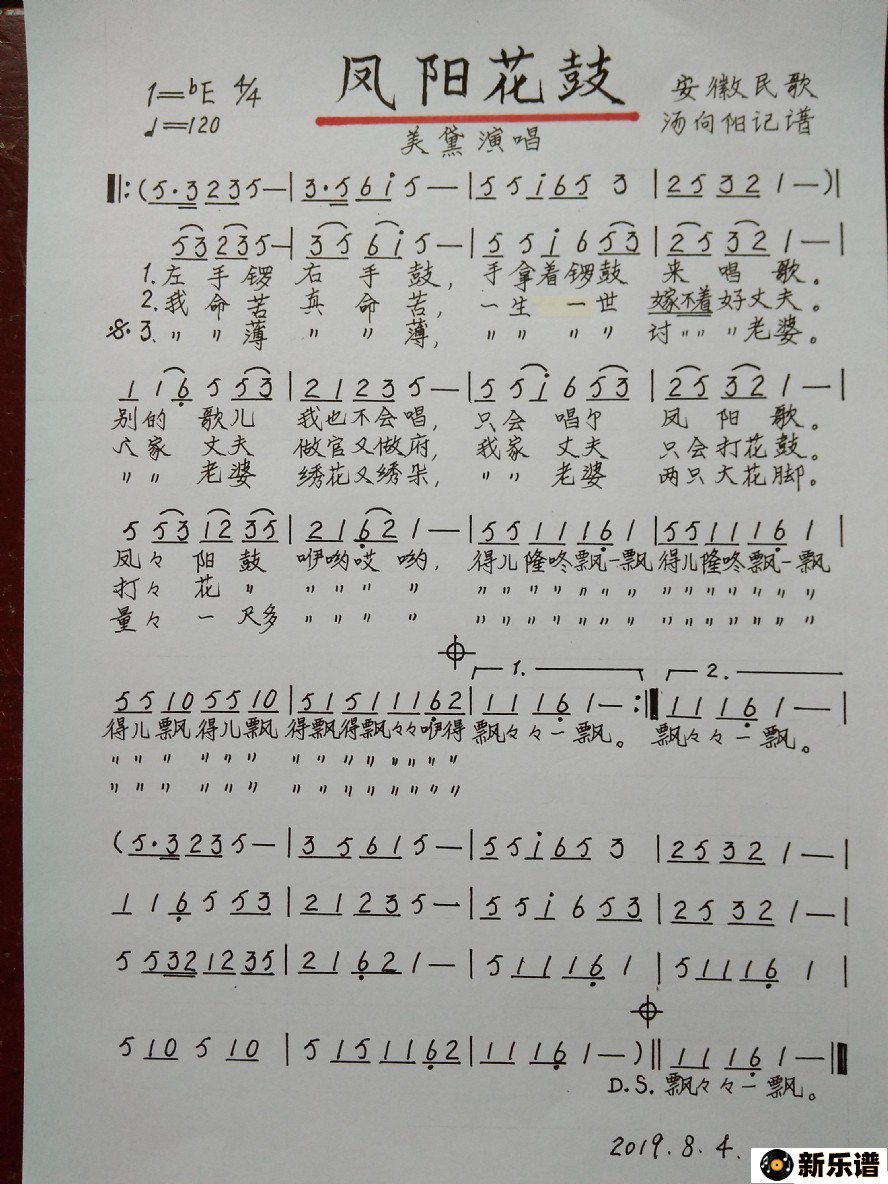 凤阳花鼓
1=bE 4/4
安徽民歌
♩=120
汤向阳记谱
美黛演唱
‖:(5·3 2 3 5 —|3·5 6 i 5 —|5 5 i 6 5 3|2 5 3 2 1 —)|
5 3 2 3 5 —|3 5 6 i 5 —|5 5 i 6 5 3|2 5 3 2 1 —|
1.左手锣右手鼓,手拿着锣鼓来唱歌。
2.我命苦真命苦,一生一世嫁不着好丈夫。
𝄋3.〃〃薄〃〃薄,〃〃〃〃讨〃〃〃老婆。
1 1 6 5 5 3|2 1 2 3 5 —|5 5 i 6 5 3|2 5 3 2 1 —|
别的歌儿我也不会唱,只会唱个凤阳歌。
人家丈夫做官又做府,我家丈夫只会打花鼓。
〃〃老婆绣花又绣朵,〃〃老婆两只大花脚。
5 5 3 1 2 3 5|2 1 6 2 1 —|5 5 1 1 1 6 1|5 5 1 1 1 6 1|
凤々阳鼓咿哟哎哟,得儿隆咚飘一飘得儿隆咚飘一飘
打々花〃〃〃〃〃〃〃〃〃〃〃〃〃〃〃〃〃〃〃
量々一尺多〃〃〃〃〃〃〃〃〃〃〃〃〃〃〃〃〃〃
1. 2.
5 5 1 0 5 5 1 0|5 1 5 1 1 1 6 2|1 1 1 6 1 —:‖1 1 1 6 1 —|
得儿飘得儿飘得飘得飘々々咿得飘々々一飘。飘々々一飘。
〃〃〃〃〃〃〃〃〃〃〃〃〃〃
〃〃〃〃〃〃〃〃〃〃〃〃〃〃
(5·3 2 3 5 —|3 5 6 1 5 —|5 5 i 6 5 3|2 5 3 2 1 —|
1 1 6 5 5 3|2 1 2 3 5 —|5 5 i 6 5 3|2 5 3 2 1 —|
5 5 3 2 1 2 3 5|2 1 6 2 1 —|5 1 1 1 6 1|5 1 1 1 6 1|
5 1 0 5 1 0|5 1 5 1 1 6 2|1 1 1 6 1 —)‖1 1 1 6 1 —‖
D.S. 飘々々一飘。
2019.8.4.
新乐谱